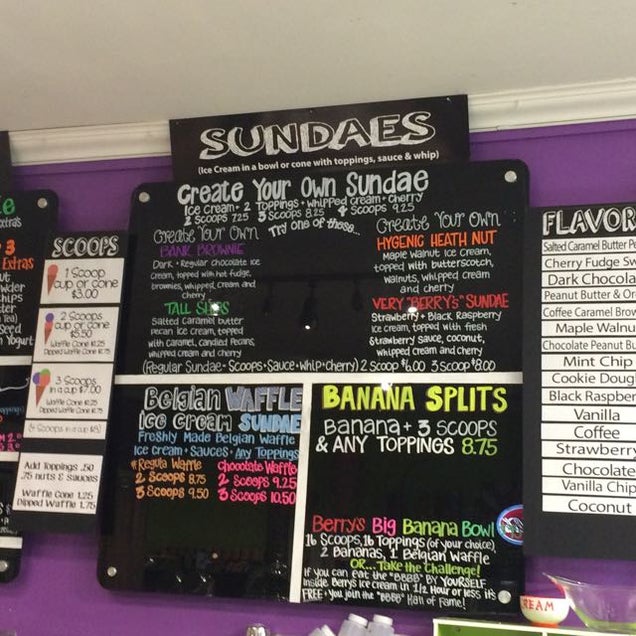 SUNDAES
(Ice Cream in a bowl or cone with toppings, sauce & whip)
Create Your Own Sundae
Ice Cream + 2 Toppings + whipped cream + cherry
2 Scoops 7.25 3 Scoops 8.25 4 Scoops 9.25
Try one of these...
Create Your Own
BANK BROWNIE
Dark + Regular chocolate ice
cream, topped with hot fudge,
brownies, whipped cream and
cherry
TALL SHIPS
Salted Caramel butter
pecan ice cream, topped
with caramel, candied pecans,
whipped cream and cherry
Create Your Own
HYGENIC HEATH NUT
Maple Walnut ice cream,
topped with butterscotch,
walnuts, whipped cream
and cherry
VERY "BERRY'S" SUNDAE
Strawberry + Black Raspberry
ice cream, topped with fresh
strawberry sauce, coconut,
whipped cream and cherry
(Regular Sundae - Scoops + Sauce + Whip + cherry) 2 Scoop $6.00 3 Scoop $8.00
Belgian WAFFLE
Ice Cream SUNDAE
Freshly Made Belgian Waffle
Ice cream + Sauces + Any Toppings
Waffle
2 Scoops 8.75
3 Scoops 9.50
Chocolate Waffle
2 Scoops 9.25
3 Scoops 10.50
BANANA SPLITS
Banana + 3 SCOOPS
& ANY TOPPINGS 8.75
Berry's Big Banana Bowl
16 Scoops, 16 Toppings (of your choice)
2 Bananas, 1 Belgian Waffle
OR... Take the Challenge!
If you can eat the "BBBB" BY YOURSELF
inside Berry's ice cream in 1 1/2 Hour or less it's
FREE + you join the "BBBB" Hall of Fame!
SCOOPS
1 Scoop
cup or cone
$3.00
2 Scoops
cup or cone
$5.50
Waffle Cone
Dipped Waffle Cone
3 Scoops
in a cup $7.00
Waffle Cone
Dipped Waffle Cone
Add Toppings .50
.75 nuts & sauces
Waffle Cone 1.25
Dipped Waffle 1.75
3
Extras
Yogurt
FLAVOR
Salted Caramel Butter P
Cherry Fudge Sw
Dark Chocola
Peanut Butter & O
Coffee Caramel Brow
Maple Walnu
Chocolate Peanut Bu
Mint Chip
Cookie Doug
Black Raspber
Vanilla
Coffee
Strawberry
Chocolate
Vanilla Chip
Coconut
REAM